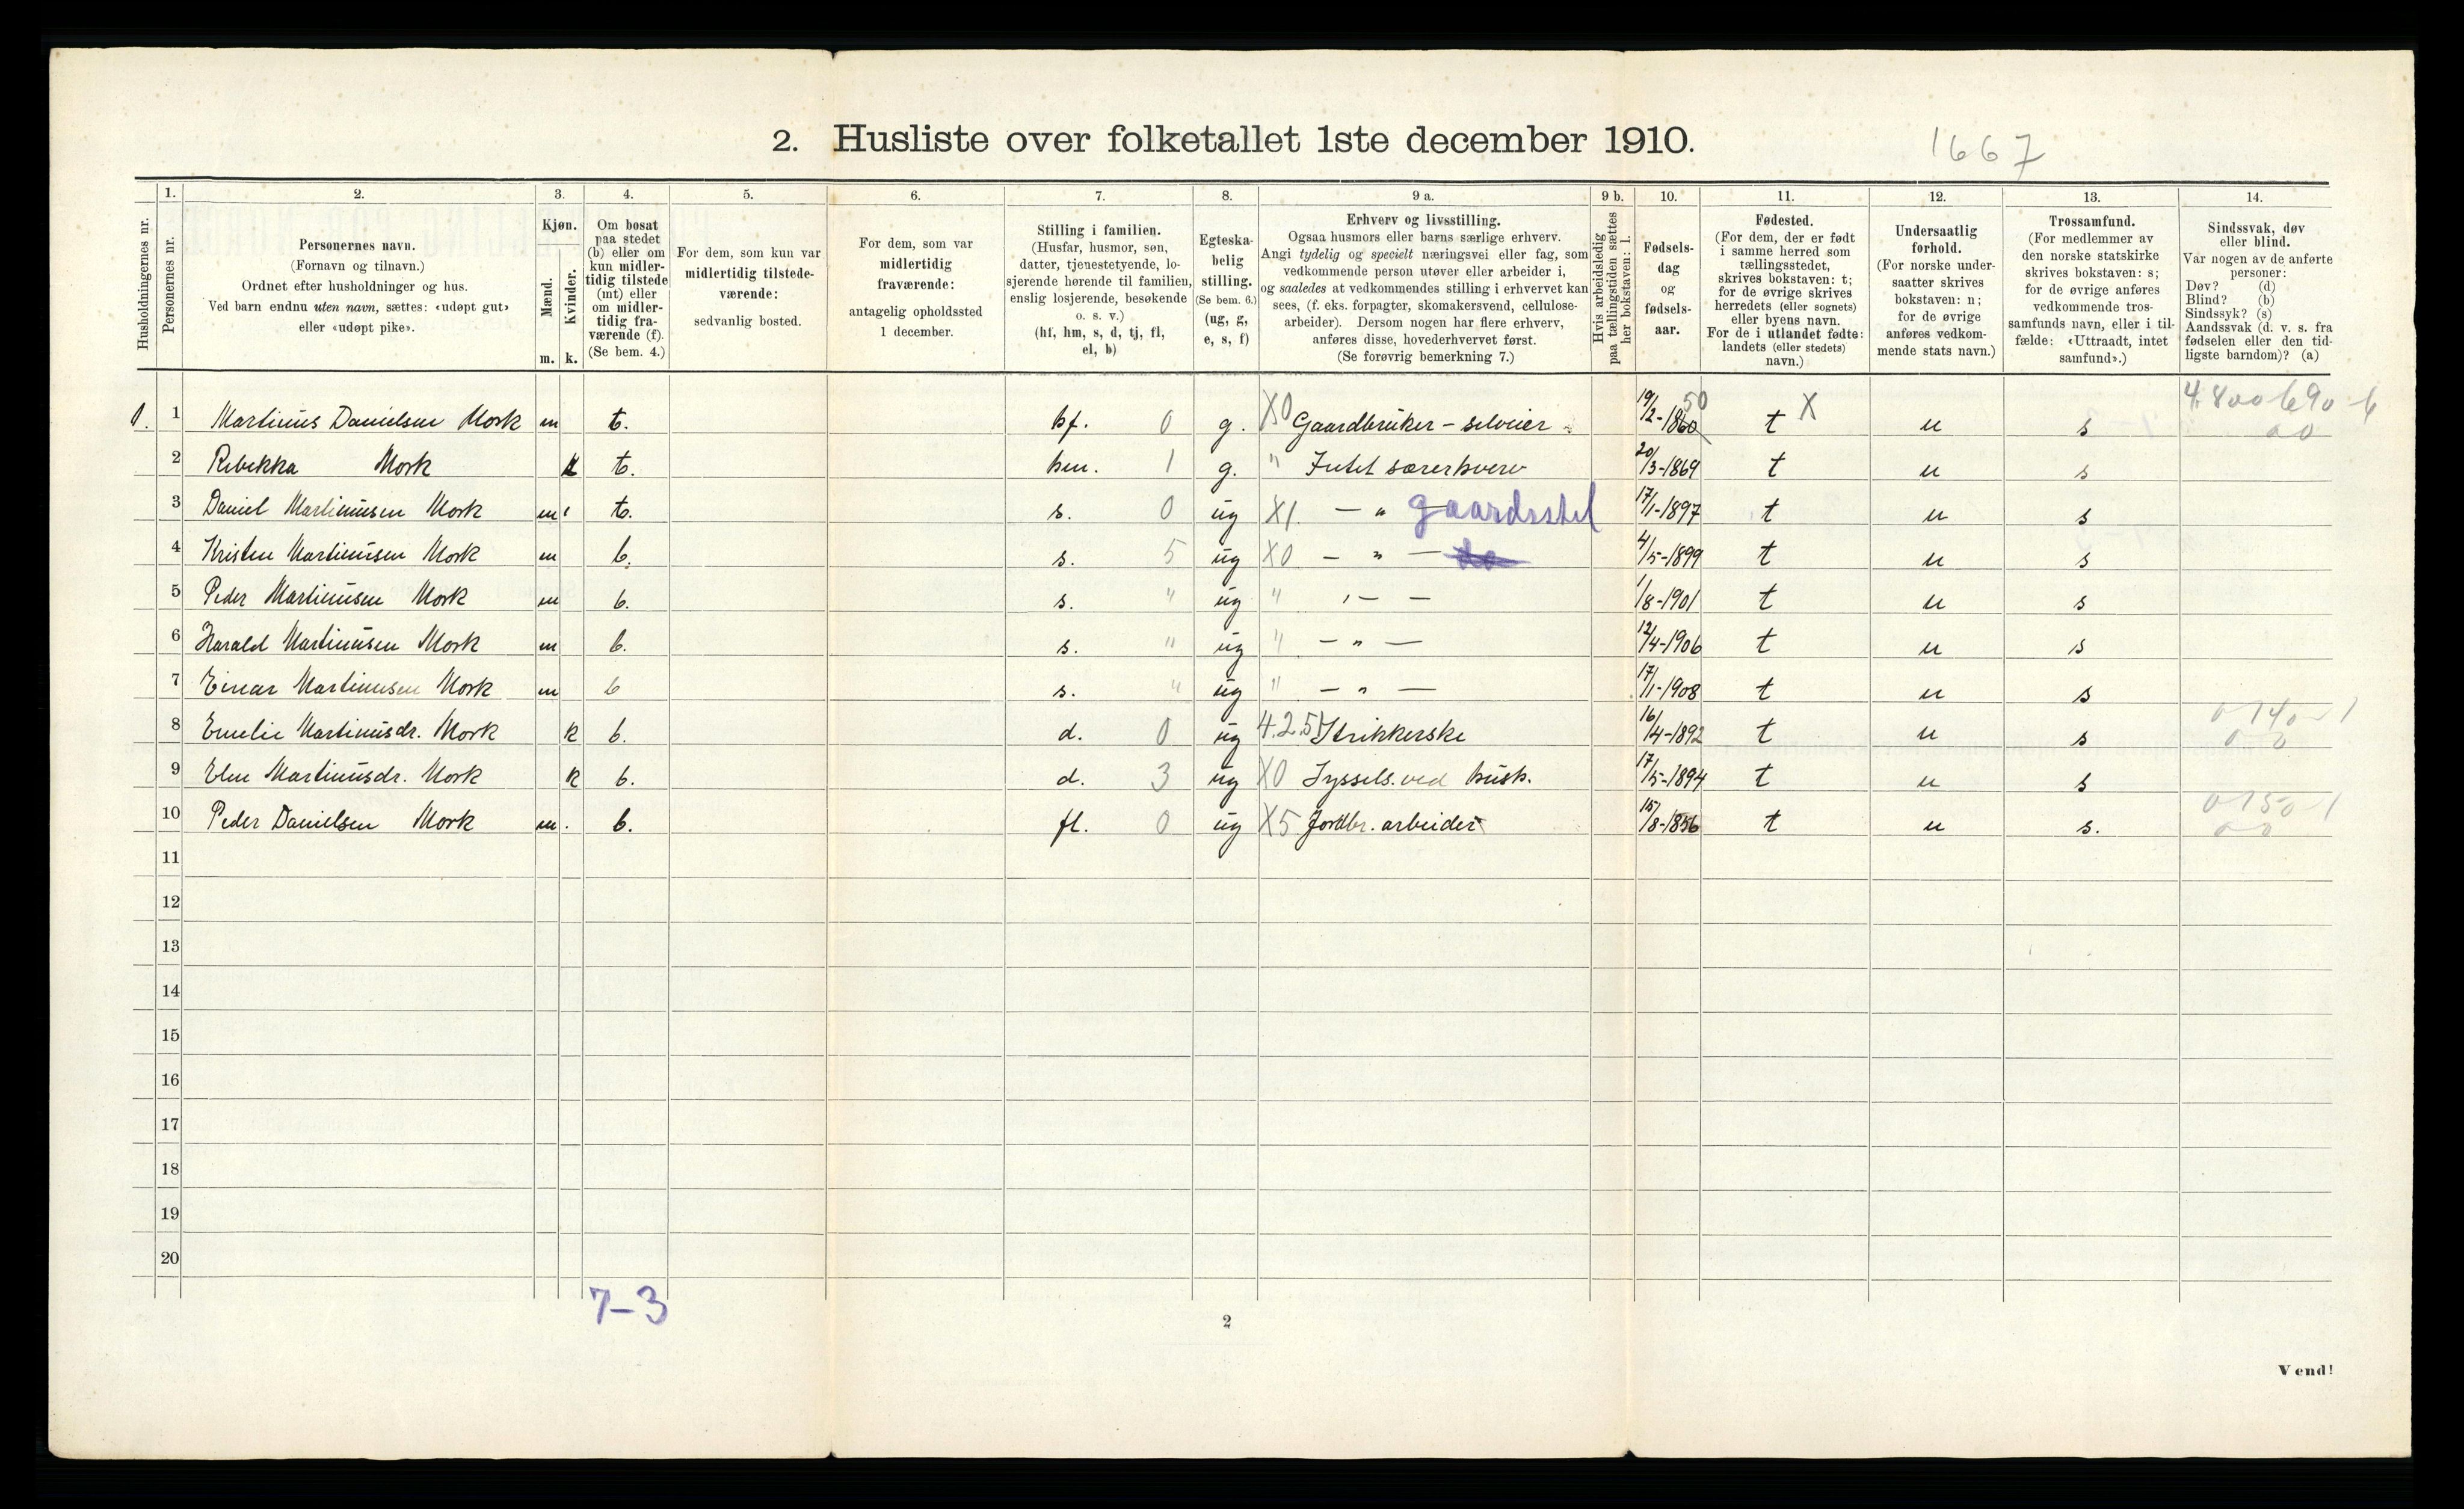 2. Husliste over folketallet 1ste december 1910.
1667
Husholdningernes nr.
1. Personernes nr.
2. Personernes navn. (Fornavn og tilnavn.) Ordnet efter husholdninger og hus. Ved barn endnu uten navn, sættes: «udøpt gut» eller «udøpt pike».
3. Kjøn. Mænd. m. Kvinder. k.
4. Om bosat paa stedet (b) eller om kun midlertidig tilstede (mt) eller om midlertidig fraværende (f). (Se bem. 4.)
5. For dem, som kun var midlertidig tilstedeværende: sedvanlig bosted.
6. For dem, som var midlertidig fraværende: antagelig opholdssted 1 december.
7. Stilling i familien. (Husfar, husmor, søn, datter, tjenestetyende, losjerende hørende til familien, enslig losjerende, besøkende o. s. v.) (hf, hm, s, d, tj, fl, el, b)
8. Egteskabelig stilling. (Se bem. 6.) (ug, g, e, s, f)
9 a. Erhverv og livsstilling. Ogsaa husmors eller barns særlige erhverv. Angi tydelig og specielt næringsvei eller fag, som vedkommende person utøver eller arbeider i, og saaledes at vedkommendes stilling i erhvervet kan sees, (f. eks. forpagter, skomakersvend, cellulosearbeider). Dersom nogen har flere erhverv, anføres disse, hovederhvervet først. (Se forøvrig bemerkning 7.)
9 b. Hvis arbeidsledig paa tællingstiden sættes her bokstaven: l.
10. Fødselsdag og fødselsaar.
11. Fødested. (For dem, der er født i samme herred som tællingsstedet, skrives bokstaven: t; for de øvrige skrives herredets (eller sognets) eller byens navn. For de i utlandet fødte: landets (eller stedets) navn.)
12. Undersaatlig forhold. (For norske undersaatter skrives bokstaven: n; for de øvrige anføres vedkommende stats navn.)
13. Trossamfund. (For medlemmer av den norske statskirke skrives bokstaven: s; for de øvrige anføres vedkommende trossamfunds navn, eller i tilfælde: «Uttraadt, intet samfund».)
14. Sindssvak, døv eller blind. Var nogen av de anførte personer: Døv? (d) Blind? (b) Sindssyk? (s) Aandssvak (d. v. s. fra fødselen eller den tidligste barndom)? (a)
1. 1 Martinus Danielsen Mork m b. hf. 0 g. X0 Gaardbruker - selveier 19/2-1860 50 t X n s
2 Rebekka Mork k b. hm. 1 g. " Intet særerhverv 20/3-1869 t n s
3 Daniel Martinusen Mork m b. s. 0 ug X1 — " gaardsstel 17/1-1897 t n s
4 Kristen Martinusen Mork m b. s. 5 ug X0 — " — do 4/5-1899 t n s
5 Peder Martinusen Mork m b. s. " ug " — — 1/8-1901 t n s
6 Harald Martinusen Mork m b. s. " ug " — " — 12/4-1906 t n s
7 Einar Martinusen Mork m b s. " ug " — " — 17/1-1908 t n s
8 Emelie Martinusdr. Mork k b. d. 0 ug 4.25 Strikkerske 16/4-1892 t n s 0-140-1 0 0
9 Eline Martinusdr. Mork k b. d. 3 ug X0 Syssels. ved hush. 17/5-1894 t n s
10 Peder Danielsen Mork m. b. fl. 0 ug X5 Jordbr. arbeider 15/8-1856 t n s. 0-150-1 0 0
11
12
13
14
15
16
17
18
19
20
7-3
2
Vend!